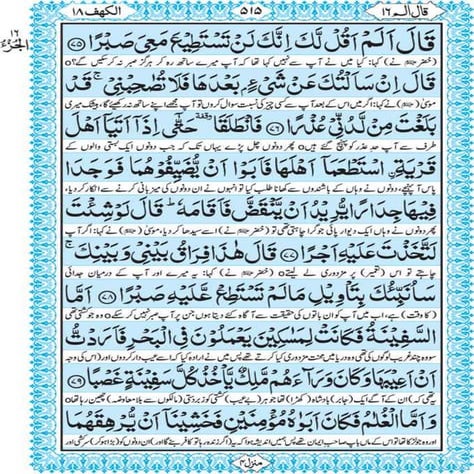 الكهف ١٨ ٥١٥ قال الم ١٦
١٦
الجزء
قَالَ اَلَمْ اَقُلْ لَّكَ اِنَّكَ لَنْ تَسْتَطِيْعَ مَعِيَ صَبْرًا ﴿٧٥﴾
(خضر نے) کہا: کیا میں نے آپ سے نہیں کہا تھا کہ آپ میرے ساتھ رہ کر ہرگز صبر نہ کر سکیں گے
قَالَ اِنْ سَاَلْتُكَ عَنْ شَيْءٍۭ بَعْدَهَا فَلَا تُصٰحِبْنِيْ ۚ قَدْ
موسیٰ نے کہا: اگر میں اس کے بعد آپ سے کسی چیز کی نسبت سوال کروں تو آپ مجھے اپنے ساتھ نہ رکھیئے گا، بیشک میری
بَلَغْتَ مِنْ لَّدُنِّيْ عُذْرًا ﴿٧٦﴾ فَانْطَلَقَا ۥ حَتّٰٓى اِذَآ اَتَيَآ اَهْلَ
طرف سے آپ حدِ عذر کو پہنچ گئے ہیں پھر دونوں چل پڑے یہاں تک کہ جب دونوں ایک بستی والوں کے
قَرْيَةِ ِ۟اسْتَطْعَمَآ اَهْلَهَا فَاَبَوْا اَنْ يُّضَيِّفُوْهُمَا فَوَجَدَا
پاس آ پہنچے، دونوں نے وہاں کے باشندوں سے کھانا طلب کیا تو انہوں نے ان دونوں کی میزبانی کرنے سے انکار کر دیا،
فِيْهَا جِدَارًا يُّرِيْدُ اَنْ يَّنْقَضَّ فَاَقَامَهٗ ؕ قَالَ لَوْ شِئْتَ
پھر دونوں نے وہاں ایک دیوار پائی جو گرا چاہتی تھی تو (خضر نے) اسے سیدھا کر دیا، موسیٰ نے کہا: اگر آپ
لَتَّخَذْتَ عَلَيْهِ اَجْرًا ﴿٧٧﴾ قَالَ هٰذَا فِرَاقُ بَيْنِيْ وَبَيْنِكَ ۚ
چاہتے تو اس (تعمیر) پر مزدوری لے لیتے (خضر نے) کہا: یہ میرے اور آپ کے درمیان جدائی
سَاُنَبِّئُكَ بِتَاْوِيْلِ مَا لَمْ تَسْتَطِعْ عَّلَيْهِ صَبْرًا ﴿٧٨﴾ اَمَّا
(کا وقت) ہے، اب میں آپ کو ان باتوں کی حقیقت سے آگاہ کئے دیتا ہوں جن پر آپ صبر نہیں کر سکے وہ جو کشتی تھی
السَّفِيْنَةُ فَكَانَتْ لِمَسٰكِيْنَ يَعْمَلُوْنَ فِي الْبَحْرِ فَاَرَدْتُّ
سو وہ چند غریب لوگوں کی تھی وہ دریا میں محنت مزدوری کیا کرتے تھے پس میں نے ارادہ کیا کہ اسے عیب دار کر دوں اور (اس کی وجہ
اَنْ اَعِيْبَهَا وَكَانَ وَرَآءَهُمْ مَّلِكٌ يَّاْخُذُ كُلَّ سَفِيْنَةٍ غَصْبًا ﴿٧٩﴾
یہ تھی کہ) ان کے آگے ایک (جابر) بادشاہ (کھڑا) تھا جو ہر (بے عیب) کشتی کو زبردستی (مالکوں سے بلا معاوضہ) چھین رہا تھا
وَاَمَّا الْغُلٰمُ فَكَانَ اَبَوٰهُ مُؤْمِنَيْنِ فَخَشِيْنَآ اَنْ يُّرْهِقَهُمَا
اور وہ جو لڑکا تھا تو اس کے ماں باپ صاحبِ ایمان تھے پس ہمیں اندیشہ ہوا کہ یہ (اگر زندہ رہا تو کافر بنے گا اور) ان دونوں کو (بڑا ہو کر) سرکشی اور
منزل ٤